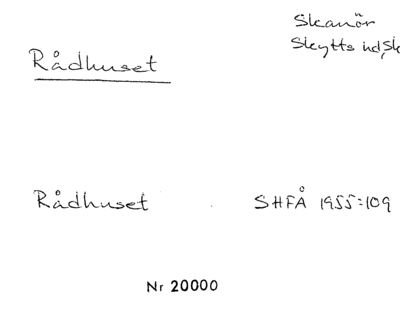 Skanör
Skytts hd, Sk
Rådhuset
Rådhuset SHFÅ 1955:109
Nr 20000